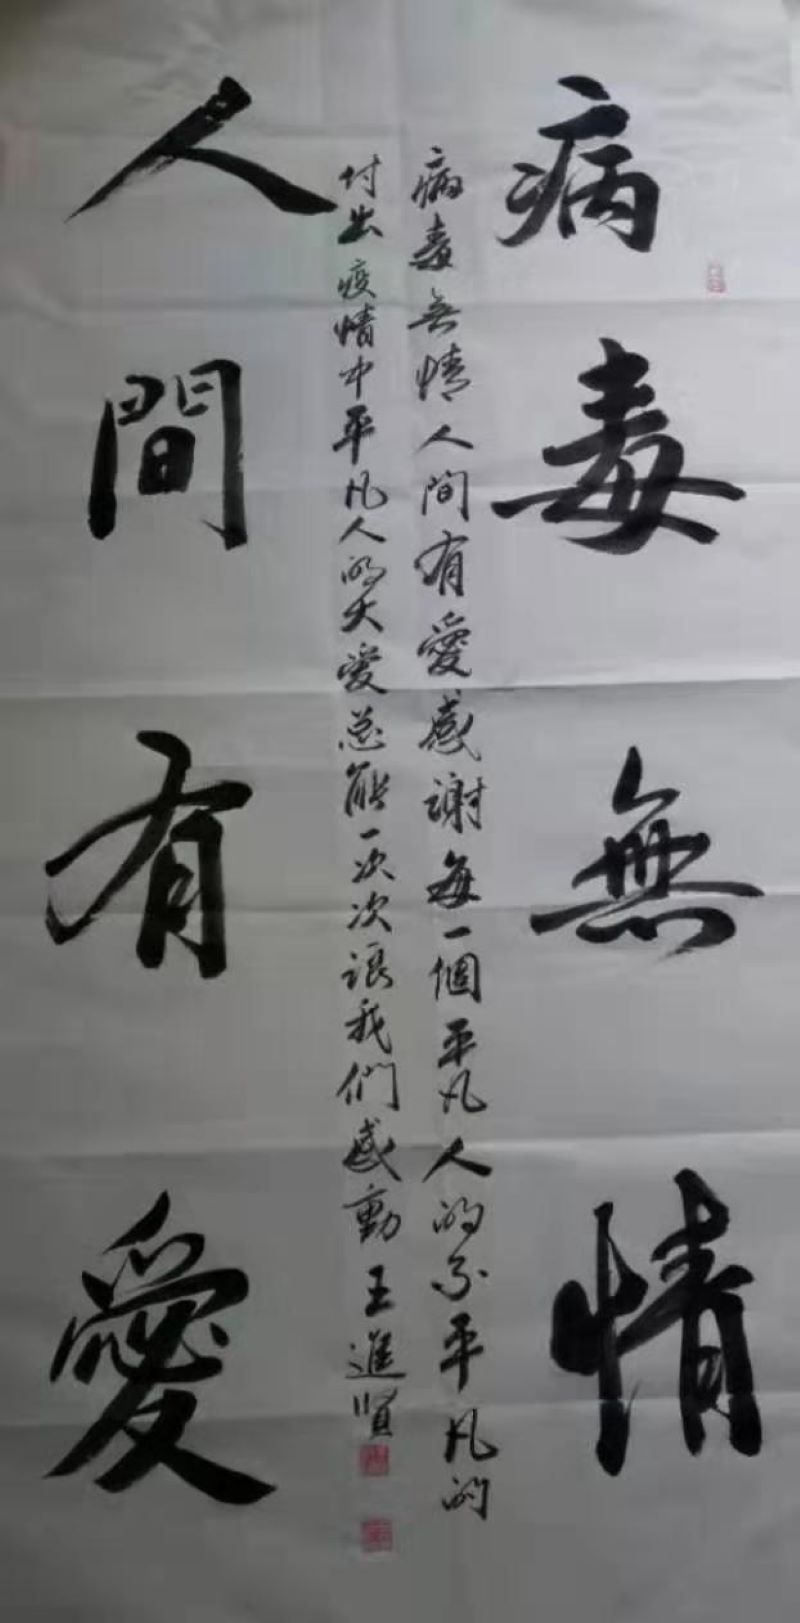 病毒無情
病毒無情人間有愛感謝每一個平凡人的不平凡的
付出疫情中平凡人的大爱总能一次次讓我們感動 王進賢
人間有愛